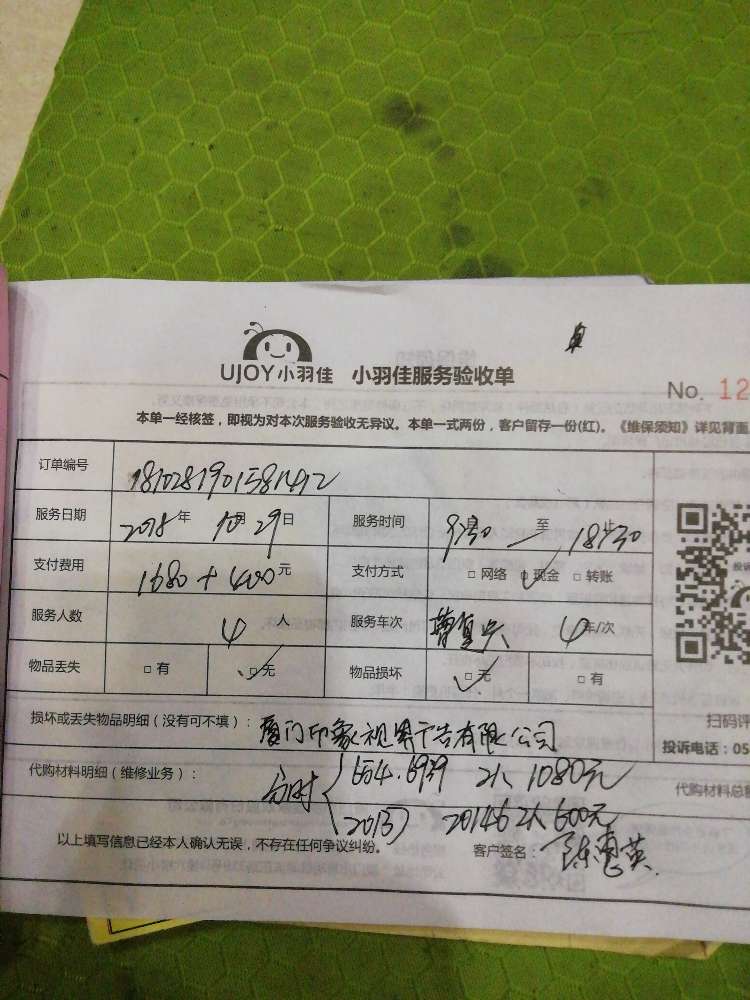 UJOY小羽佳 小羽佳服务验收单
No. 12
本单一经核签，即视为对本次服务验收无异议。本单一式两份，客户留存一份(红)。《维保须知》详见背面
订单编号 1810281901581492
服务日期 2018年10月29日 服务时间 9:30 至 18:30止
支付费用 1680+400元 支付方式 □网络 □现金 □转账
服务人数 4人 服务车次 4车/次
物品丢失 □有 □无 物品损坏 □无 □有
扫码评
损坏或丢失物品明细（没有可不填）： 厦门印象视界广告有限公司
投诉电话：05
代购材料明细（维修业务）： 1080元
代购材料总
2人600元
以上填写信息已经本人确认无误，不存在任何争议纠纷。 客户签名： 陈惠英